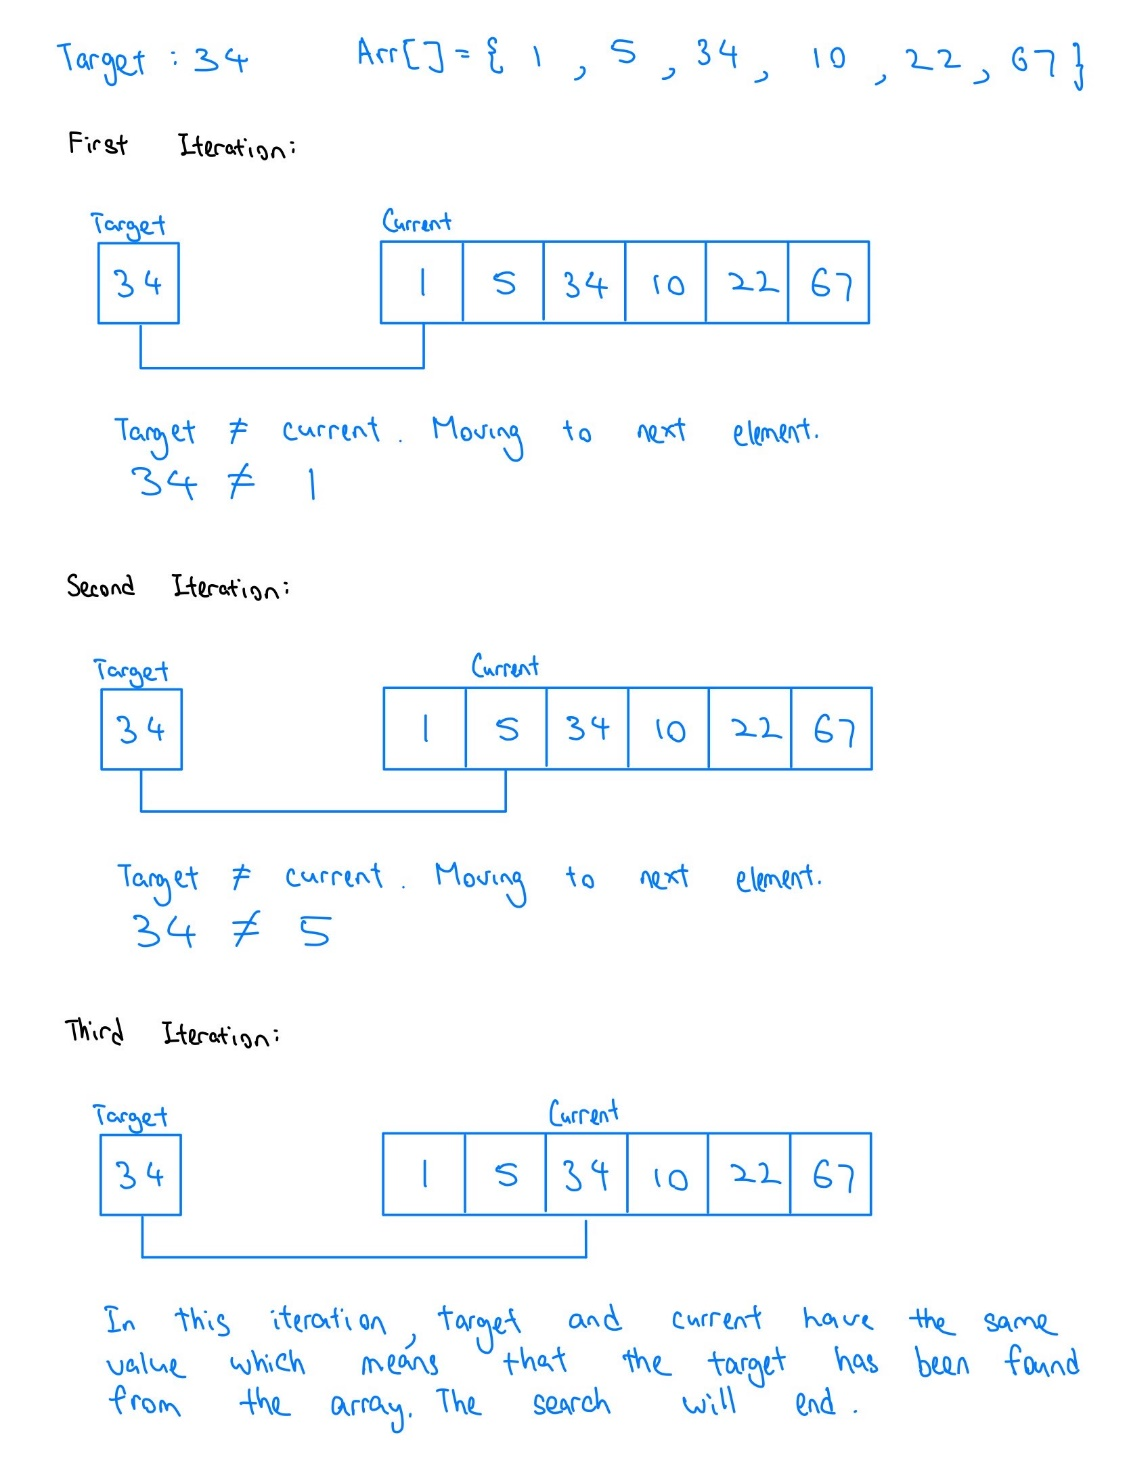 Target : 34 Arr[] = { 1 , 5 , 34 , 10 , 22 , 67 }
First Iteration:
Target Current
34 1 5 34 10 22 67
Target ≠ current. Moving to next element.
34 ≠ 1
Second Iteration:
Target Current
34 1 5 34 10 22 67
Target ≠ current. Moving to next element.
34 ≠ 5
Third Iteration:
Target Current
34 1 5 34 10 22 67
In this iteration, target and current have the same
value which means that the target has been found
from the array. The search will end.